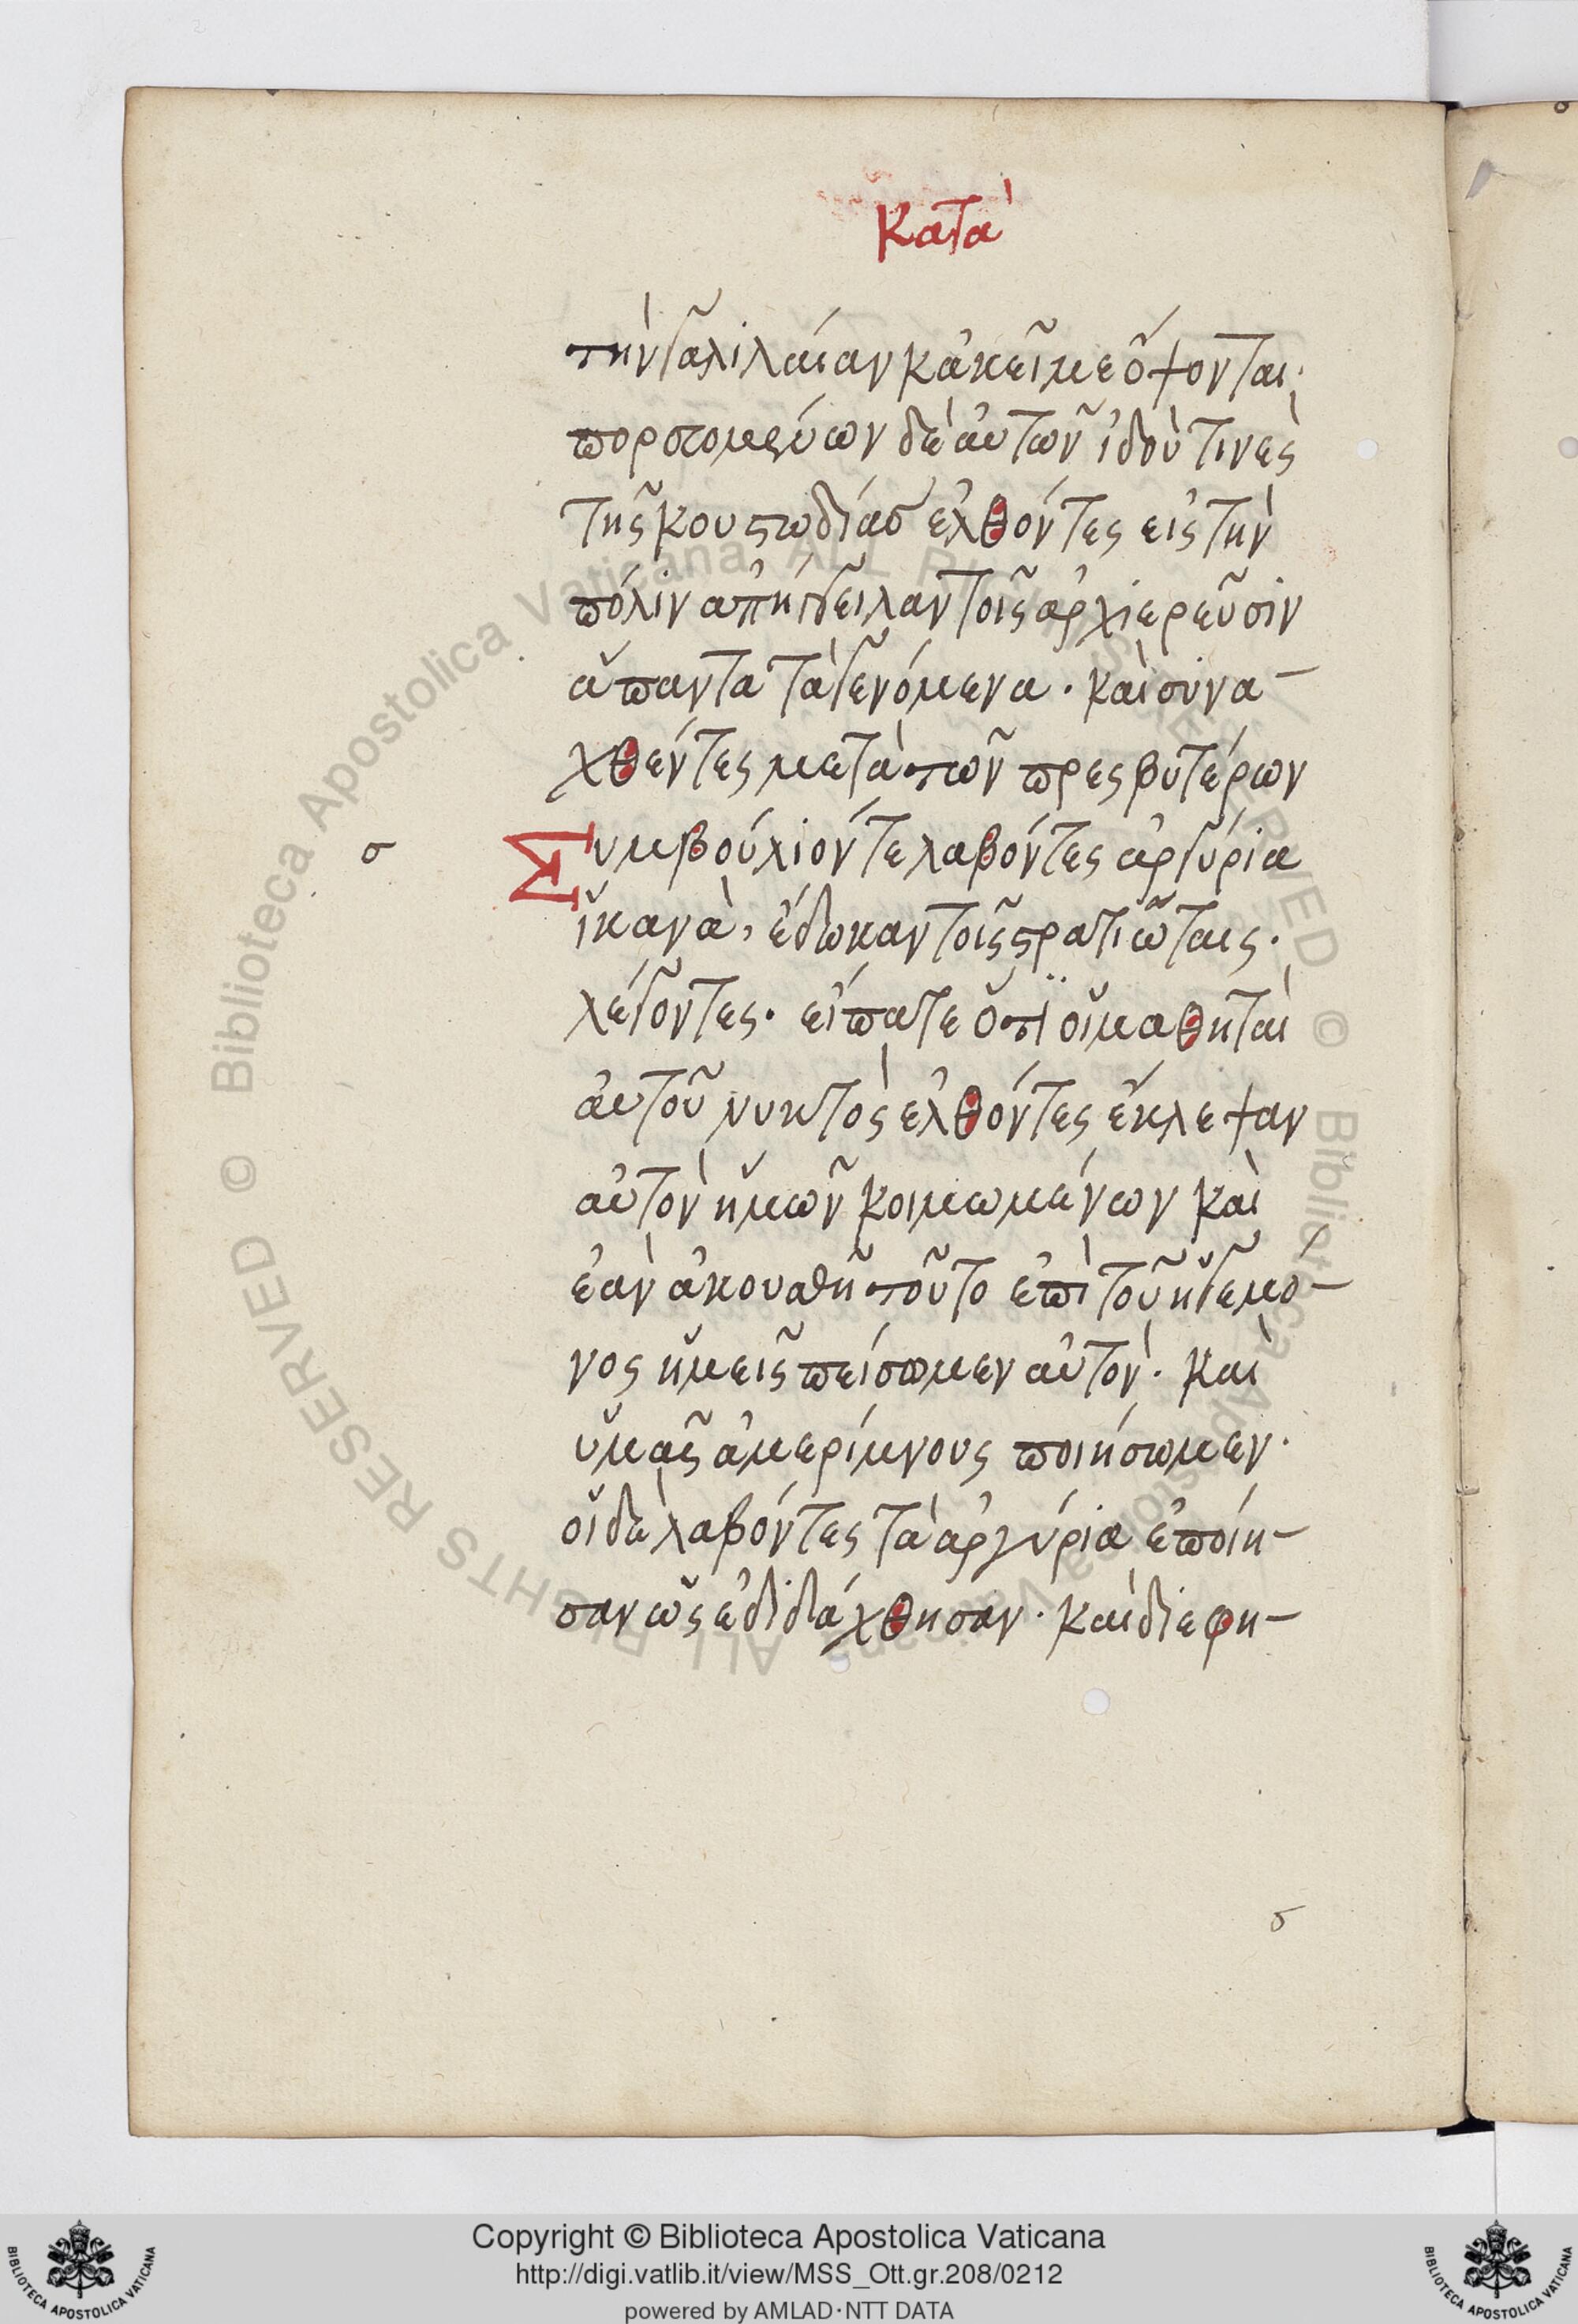 Κατὰ
τὴν Γαλιλαίαν κἀκεῖ με ὄψονται·
πορευομένων δὲ αὐτῶν ἰδού τινὲς
τῆς κουστωδίας ἐλθόντες εἰς τὴν
πόλιν ἀπήγγειλαν τοῖς ἀρχιερεῦσιν
ἅπαντα τὰ γενόμενα · καὶ συνα–
χθέντες μετὰ τῶν πρεσβυτέρων
σ
Συμβούλιόν τε λαβόντες ἀργύρια
ἱκανὰ, ἔδωκαν τοῖς στρατιώταις ·
λέγοντες · εἴπατε ὅτϊ οἱ μαθηταὶ
αὐτοῦ νυκτὸς ἐλθόντες ἔκλεψαν
αὐτὸν ἡμῶν κοιμωμένων καὶ
ἐὰν ἀκουσθῆ τοῦτο ἐπὶ τοῦ ἡγεμό–
νος ἡμεῖς πείσωμεν αὐτὸν · καὶ
ὑμᾶς ἀμερίμνους ποιήσωμεν ·
οἱ δὲ λαβόντες τὰ ἀργύρια ἐποίη–
σαν ὡς ἐδιδάχθησαν · καὶ διεφη–
σ
Copyright © Biblioteca Apostolica Vaticana
http://digi.vatlib.it/view/MSS_Ott.gr.208/0212
powered by AMLAD·NTT DATA
BIBLIOTECA APOSTOLICA VATICANA
BIBLIOTECA APOSTOLICA VATICANA
© Biblioteca Apostolica Vaticana ALL RIGHTS RESERVED © Biblioteca Apostolica Vaticana ALL RIGHTS RESERVED